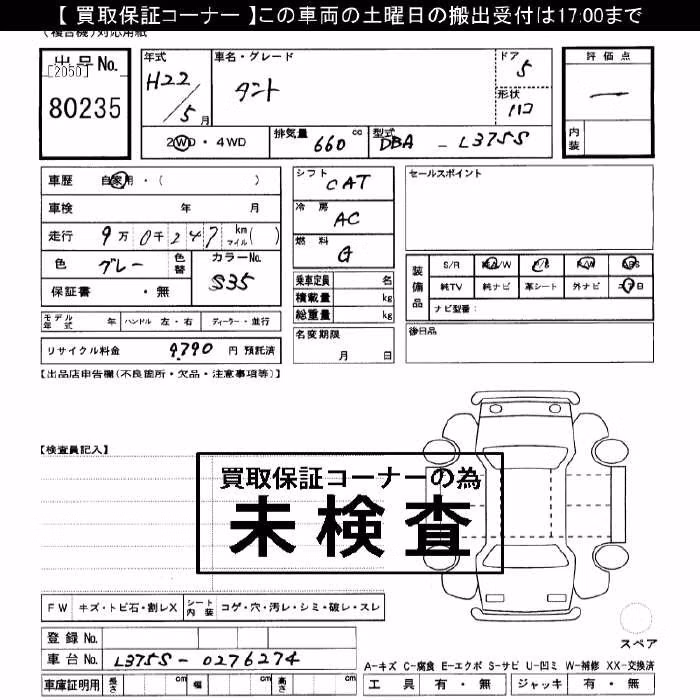 【 買取保証コーナー 】この車両の土曜日の搬出受付は17:00まで
(複合機)対応用紙
出品No.
[2050]
80235
年式
H22/5月
車名・グレード
タント
ドア
5
形状
ハコ
2WD・4WD
排気量 660 cc
型式 DBA - L375S
評価点
ー
内装
車歴 自家用・( )
車検 年 月
走行 9万0千247 km マイル( )
色 グレー 色替
カラーNo.
S35
保証書 ・無
シフト
CAT
冷房
AC
燃料
G
乗車定員 名
積載量 kg
総重量 kg
名変期限
月 日
セールスポイント
装備品
S/R 純A/W P/S P/W ABS
純TV 純ナビ 革シート 外ナビ エアB
ナビ型番:
後日品
モデル年式 年 ハンドル 左・右 ディーラー・並行
リサイクル料金 9,790 円 預託済
【出品店申告欄(不良箇所・欠品・注意事項等)】
【検査員記入】
買取保証コーナーの為
未検査
FW キズ・トビ石・割レX シート内装 コゲ・穴・汚レ・シミ・破レ・スレ
登録No.
車台No. L375S-0276274
車庫証明用 長さ cm 幅 cm 高さ cm
スペア
A-キズ C-腐食 E-エクボ S-サビ U-凹ミ W-補修 XX-交換済
工具 有・無 ジャッキ 有・無